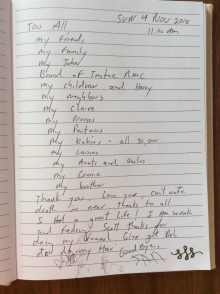 SUN 4 NOV 2018
11:00 am
Too All
my Friends
my Family
my
Board of Trustee
my children and Henry
my neighbors
my Claire
my Nurses
my Partners
my babies - all 30,000
my Cousins
my Aunts and Uncles
my Connie
my brother
Thank you Love you can't write
death is near thanks to all
I had a great life! I am weak
and fading Scott thanks for
doing my funeral
my Hair Good Bye